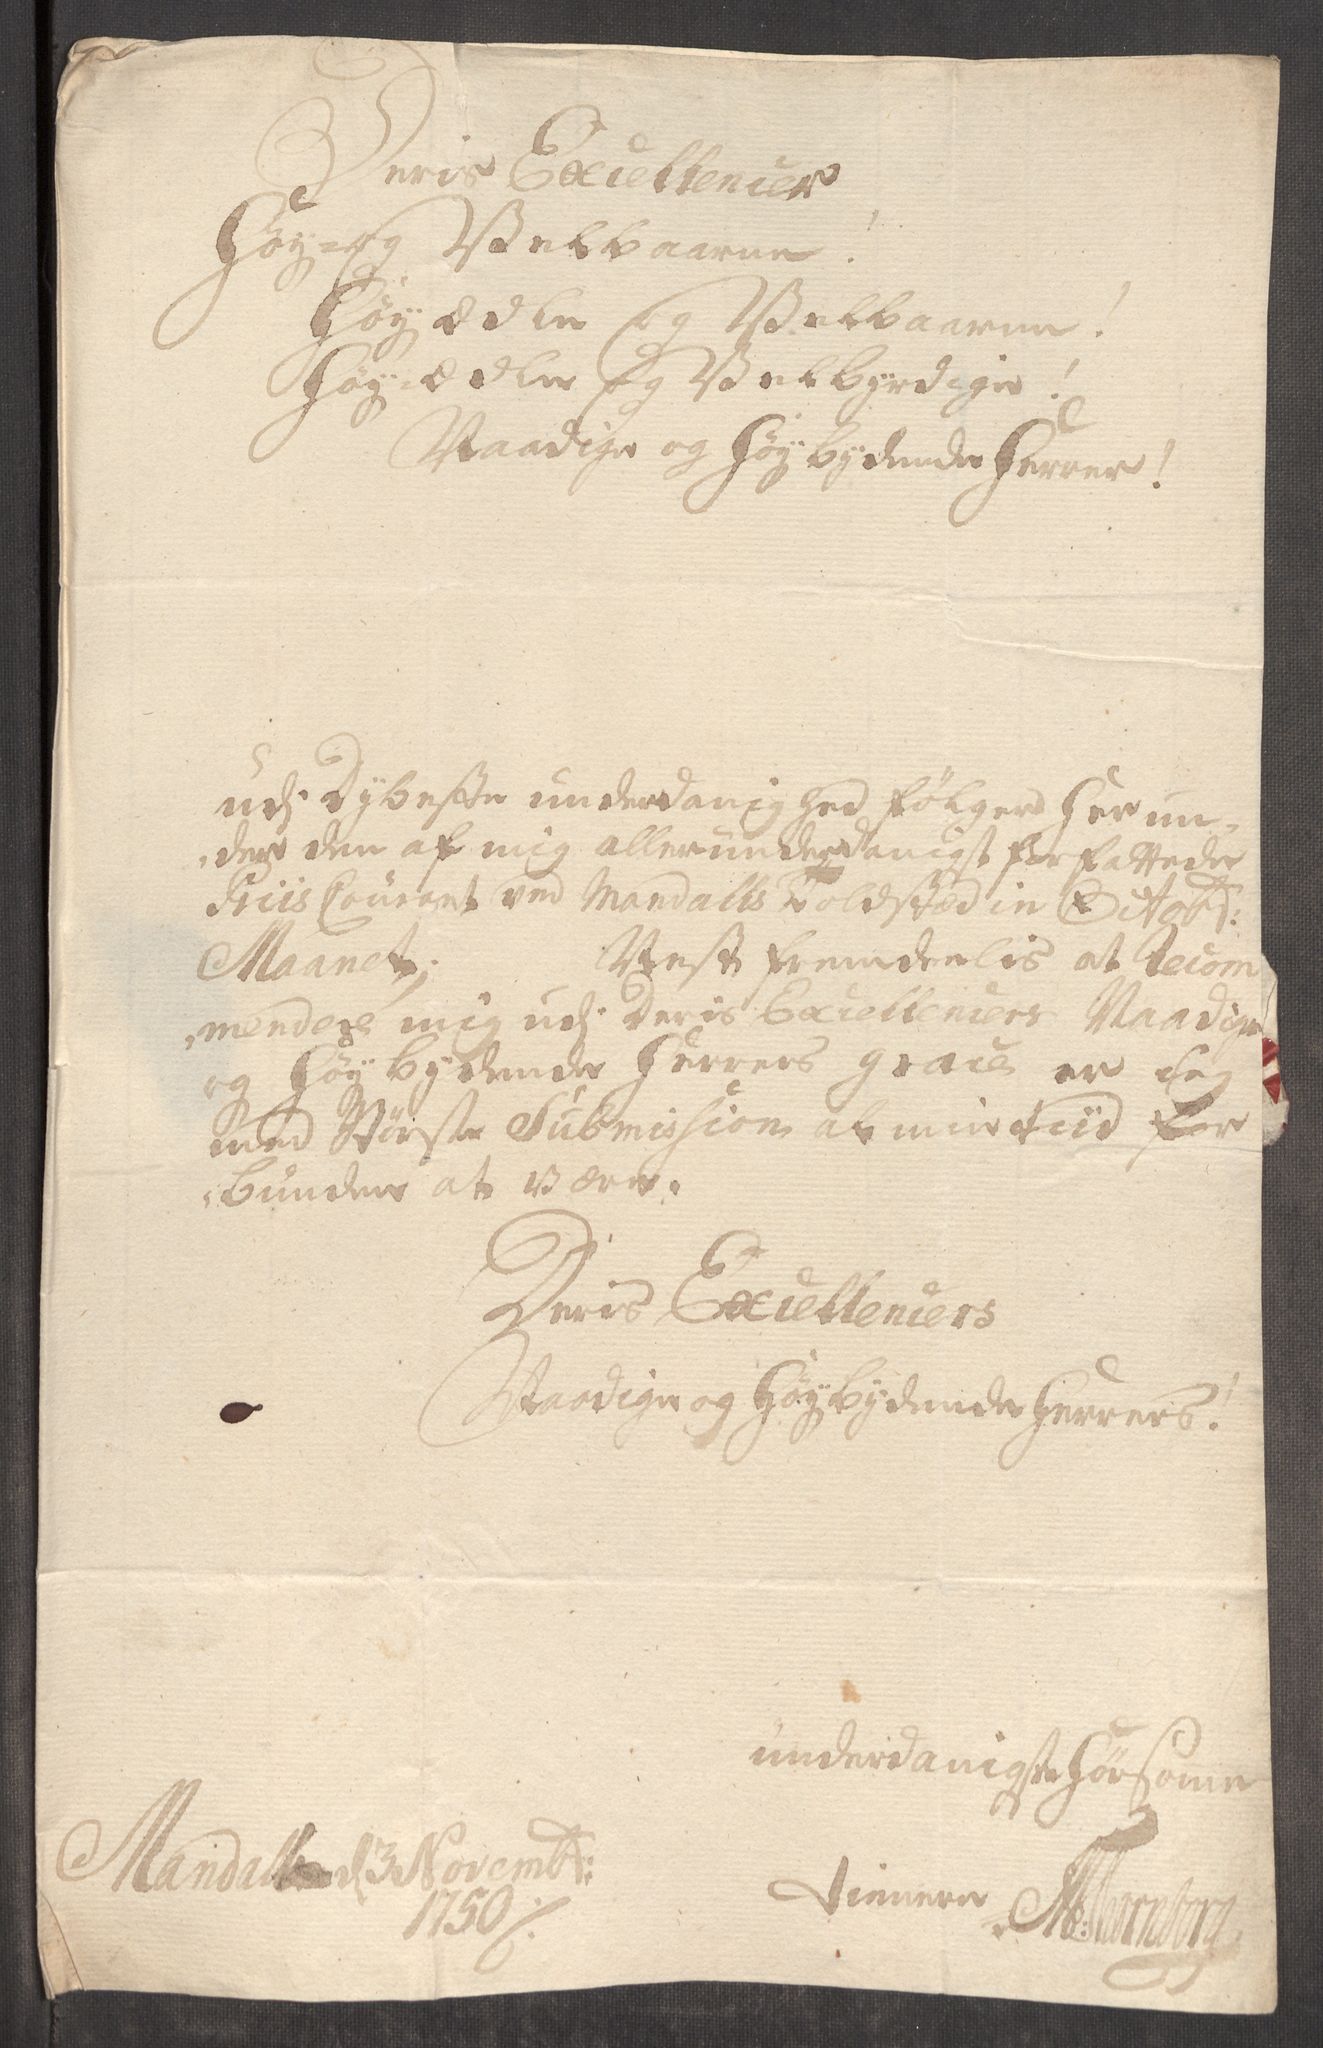 Deris Excellencer
Høy- og Velbaarne!
Høyædle og Velbaarne!
Høy-ædle og Velbyrdige!
Naadige og Høybydende Herrer!
udj Dybeste underdanighed følger Her un-
der den af mig allerunderdanigst forfattede
Priis Courant ved Mandahls Toldsted in Octobr:
Maanet; Nest fremdeelis at Recom
mendere mig udj Deris Excellencers Naadige
og Høybydende Herrers grace er Jeg
med Største Submission al min tiid for
bunden at være.
Deris Excellencers
Naadige og Høybydende Herrers!
underdanigste Hørsomme
Mandall d 3 Novembr:
1750
tienere